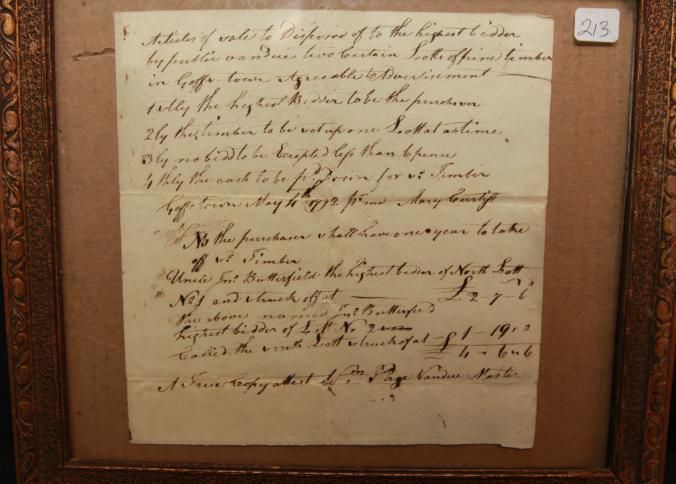 213
Articles of sale to Disposed of to the highest bidder
by public vandue two Certain Lotts of pine timber
in Goffs-town Agreeable to Advertisement
1stly the highest Bidder to be the purchaser
2ly the timber to be set up one Lott at a time
3ly no bidd to be Excepted less than 6 pence
4thly the cash to be pd Down for sd Timber
Goffstown May 4th 1792 pr me Mary Curtiss
NB the purchaser shall have one year to take
off sd Timber
Uncle Jno Butterfield the highest bidder of North Lott
No 1 and struck off at £ 2 - 7 - 6
the above named Jno Butterfield
highest bidder of Lott No 2
Called the south Lott struck of at £ 1 - 19 - 0
£ 4 - 6 - 6
A True Copy attest Page Vandue Master